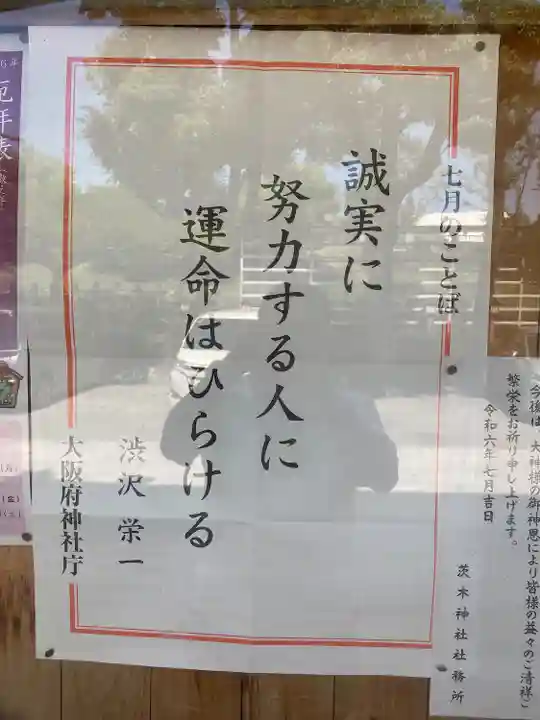 七月のことば
誠実に
努力する人に
運命はひらける
渋沢栄一
大阪府神社庁
今後は、大神様の御神恩により皆様の益々のご清祥ご
繁栄をお祈り申し上げます。
令和六年七月吉日
茨木神社社務所
厄年表